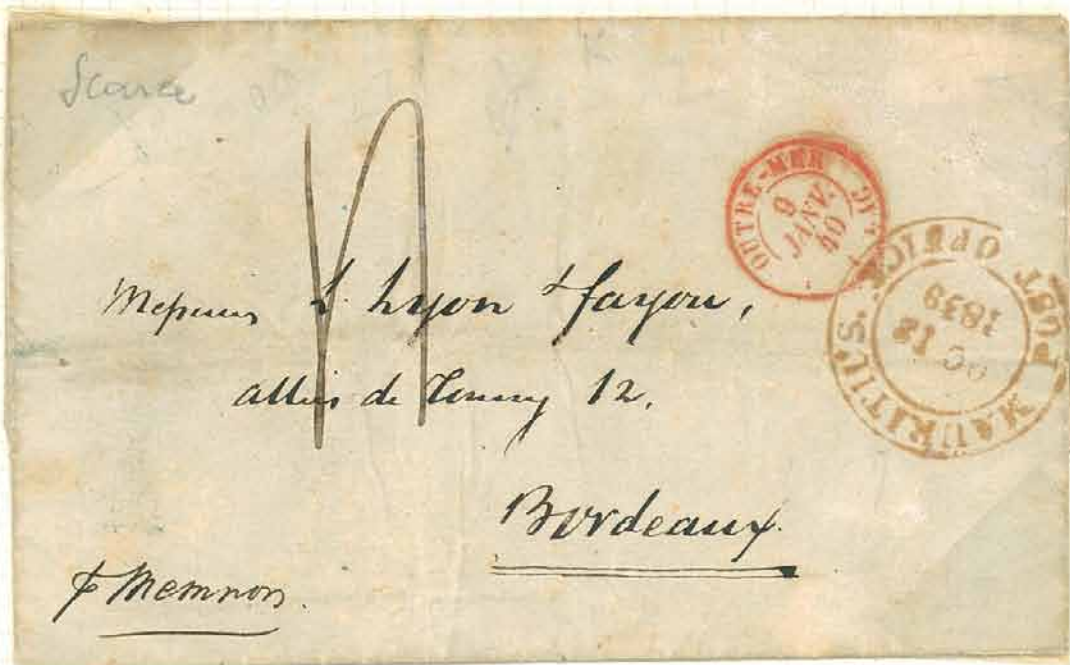 Scarce
OUTRE-MER
9
JANV.
40
MAURITIUS. POST OFFICE
OC 18
1839
Messieurs L. Lyon & fayou,
allées de Tourny 12.
Bordeaux.
p Memnon.